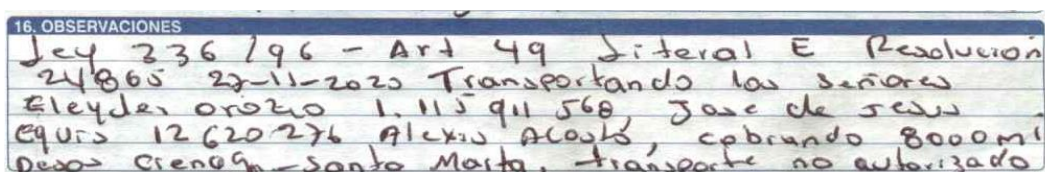 16. OBSERVACIONES
Ley 336/96 - Art 49 Literal E Resolución
24865 27-11-2020 Transportando los señores
Eleyder orozco 1.115 911 568, Jose de Jesus
12 620 276 Alexis Acosta, cobrando 8000 mil
pesos Cienag - Santa Marta, transporte no autorizado